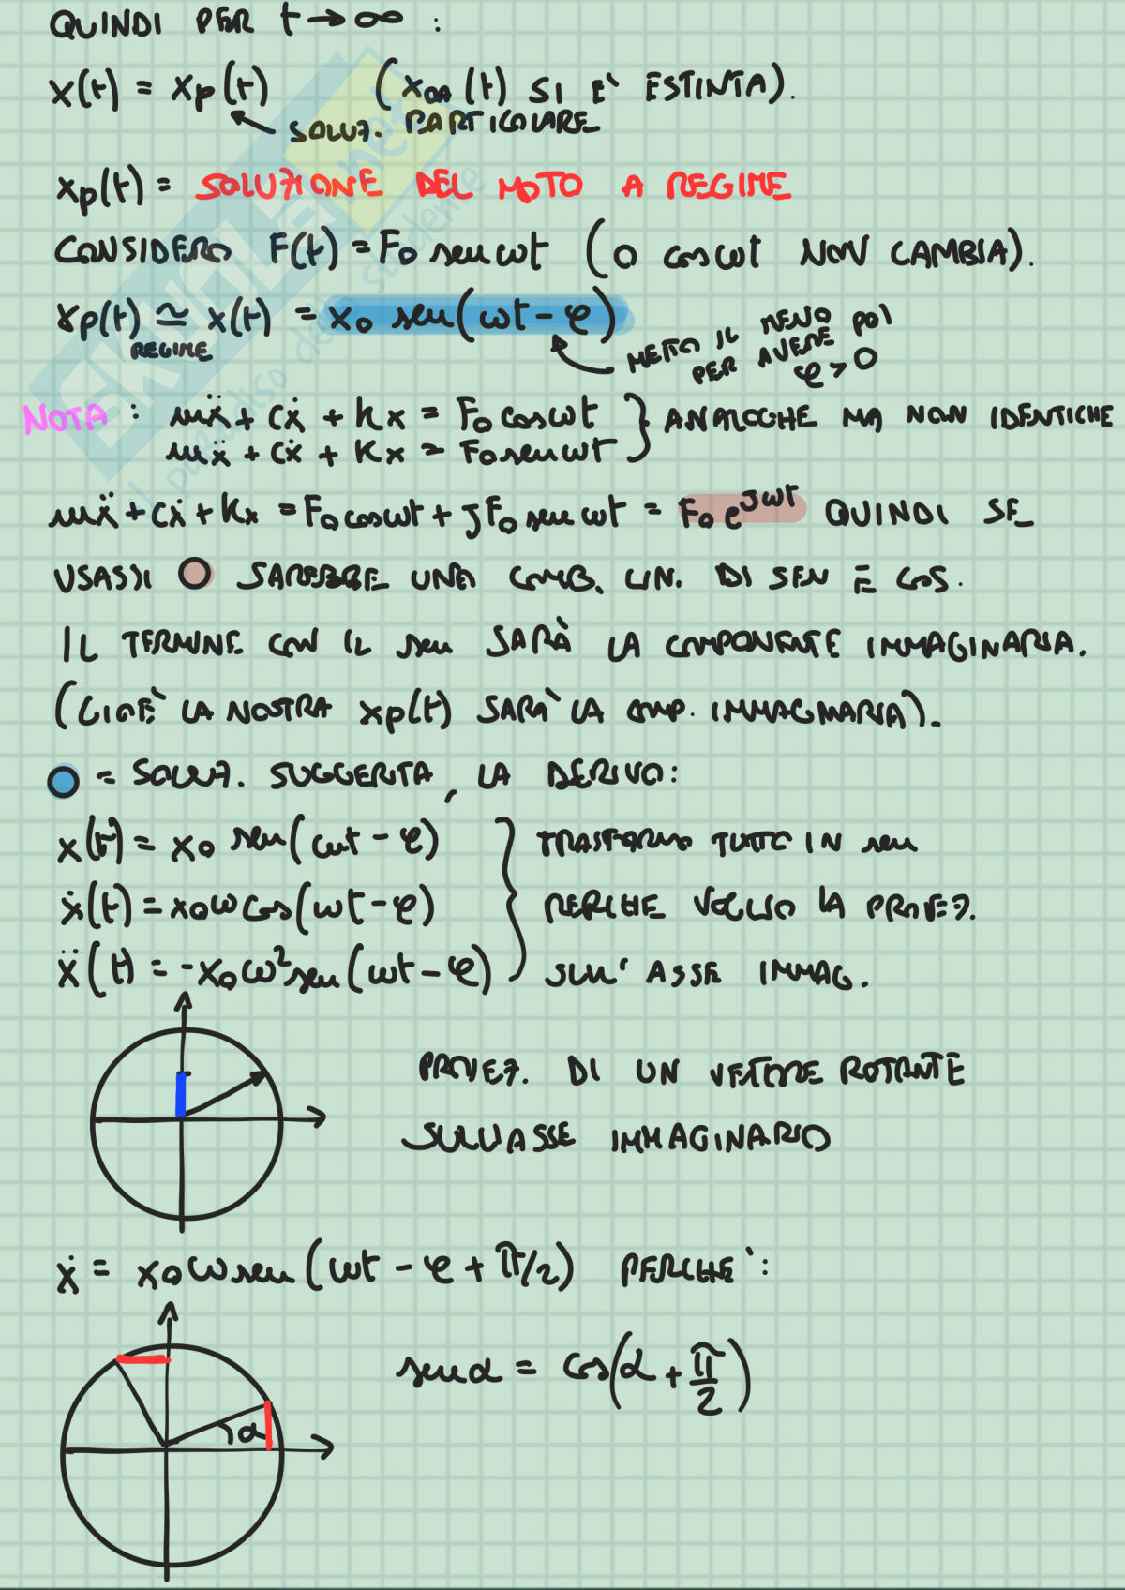 QUINDI PER t → ∞ :
x(t) = xp(t) (xOA(t) SI E' ESTINTA).
SOLUZ. PARTICOLARE
xp(t) = SOLUZIONE DEL MOTO A REGIME
CONSIDERO F(t) = F0 sen ωt (O cos ωt NON CAMBIA).
xp(t) ≅ x(t) = x0 sen(ωt - φ)
REGIME
METTO IL MENO POI
PER AVERE
φ > 0
NOTA : mẍ + cẋ + kx = F0 cos ωt } ANALOGHE MA NON IDENTICHE
mẍ + cẋ + kx = F0 sen ωt
mẍ + cẋ + kx = F0 cos ωt + jF0 sen ωt = F0 e^jωt QUINDI SE
USASSI SAREBBE UNA COMB. LIN. DI SEN E COS.
IL TERMINE CON IL sen SARÀ LA COMPONENTE IMMAGINARIA.
(CIOE' LA NOSTRA xp(t) SARA' LA COMP. IMMAGINARIA).
= SOLUZ. SUGGERITA, LA DERIVO:
x(t) = x0 sen(ωt - φ) } TRASFORMO TUTTO IN sen
ẋ(t) = x0 ω cos(ωt - φ) PERCHE VOGLIO LA PROIEZ.
ẍ(t) = -x0 ω² sen(ωt - φ) SULL' ASSE IMMAG.
PROIEZ. DI UN VETTORE ROTANTE
SULL'ASSE IMMAGINARIO
ẋ = x0 ω sen(ωt - φ + π/2) PERCHE' :
sen α = cos(α + π/2)
α